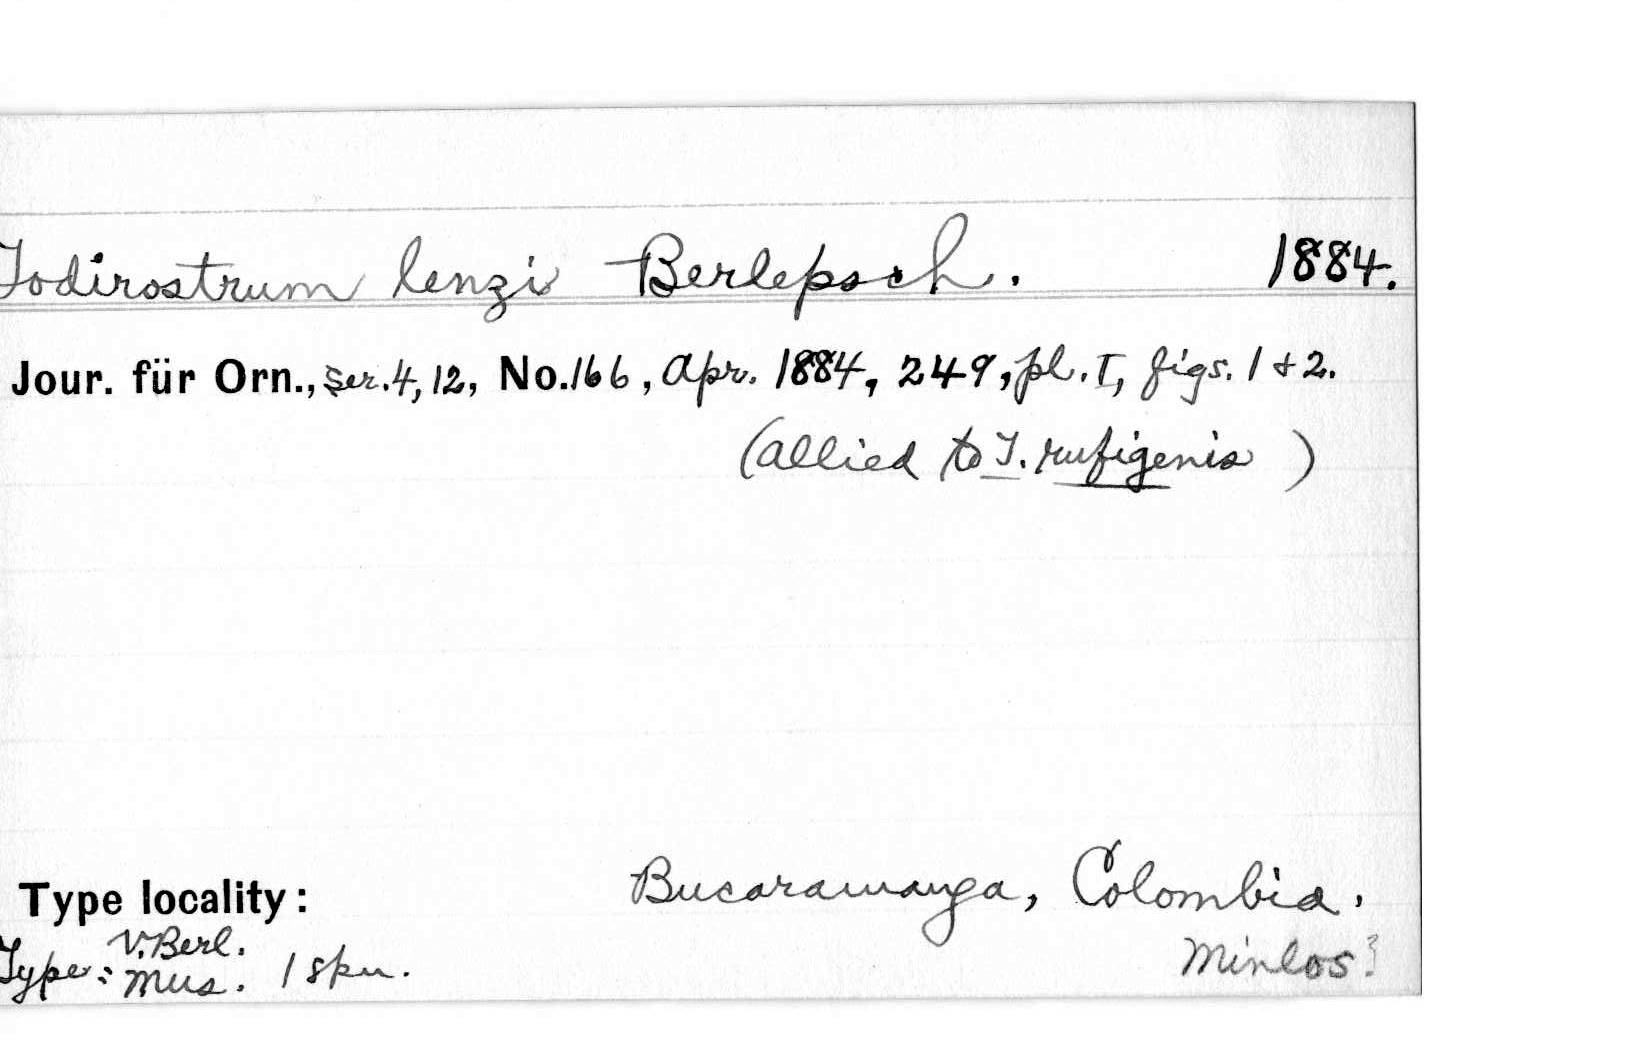 Todirostrum lenzi Berlepsch. 1884.
Jour. für Orn., ser.4, 12, No.166, Apr. 1884, 249, pl. I, figs. 1 + 2.
(allied to T. rufigenis )
Type locality: Bucaramanga, Colombia.
Type: v. Berl. Mus. 1 spn.
Minlos?